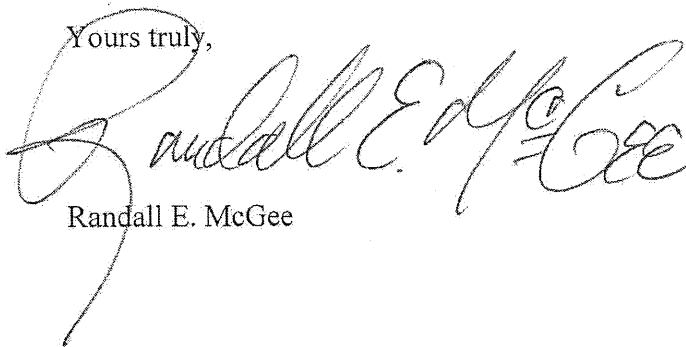 Yours truly,
Randall E. McGee
Randall E. McGee